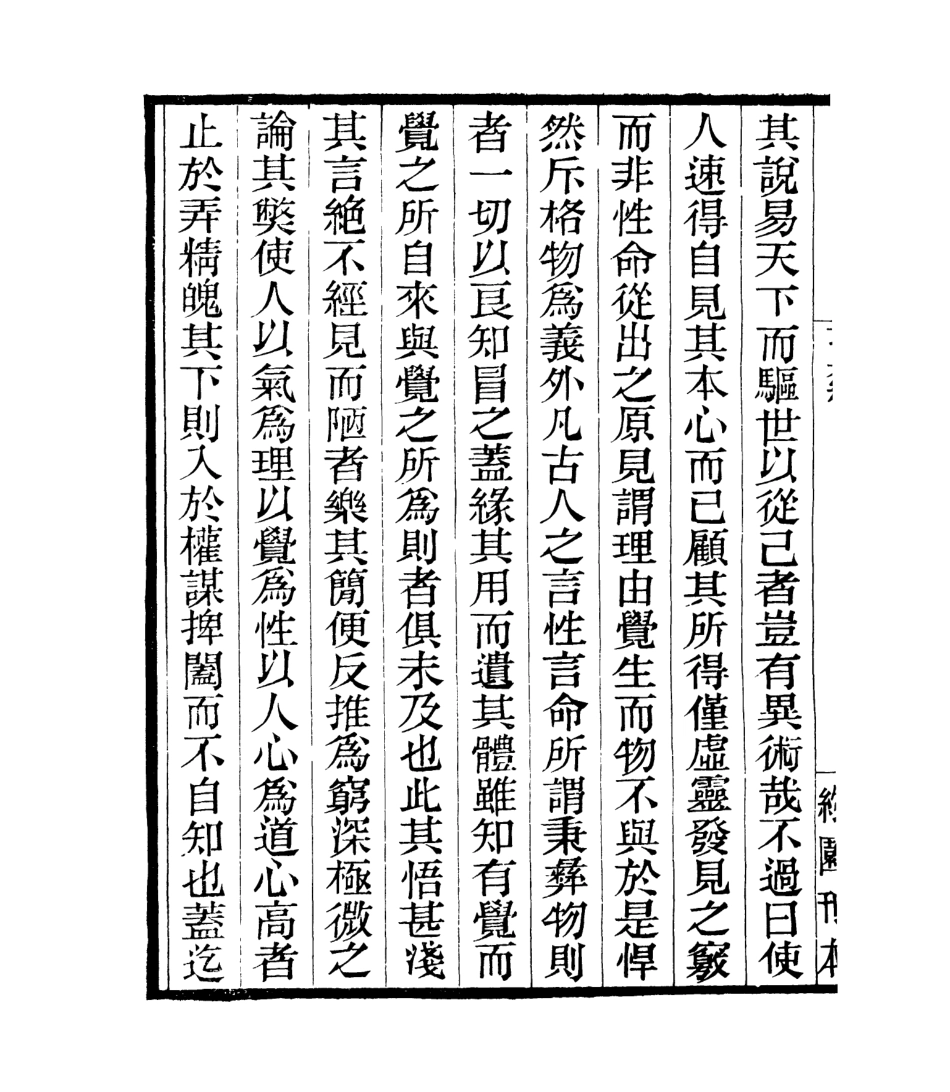 其說易天下而驅世以從己者豈有異術哉不過曰使
人速得自見其本心而已顧其所得僅虛靈發見之竅
而非性命從出之原見謂理由覺生而物不與於是悍
然斥格物爲義外凡古人之言性言命所謂秉彝物則
者一切以良知冒之蓋緣其用而遺其體雖知有覺而
覺之所自來與覺之所爲則者俱未及也此其悟甚淺
其言絶不經見而陋者樂其簡便反推爲窮深極微之
論其獘使人以氣爲理以覺爲性以人心爲道心高者
止於弄精魄其下則入於權謀捭闔而不自知也蓋迄
園刊本